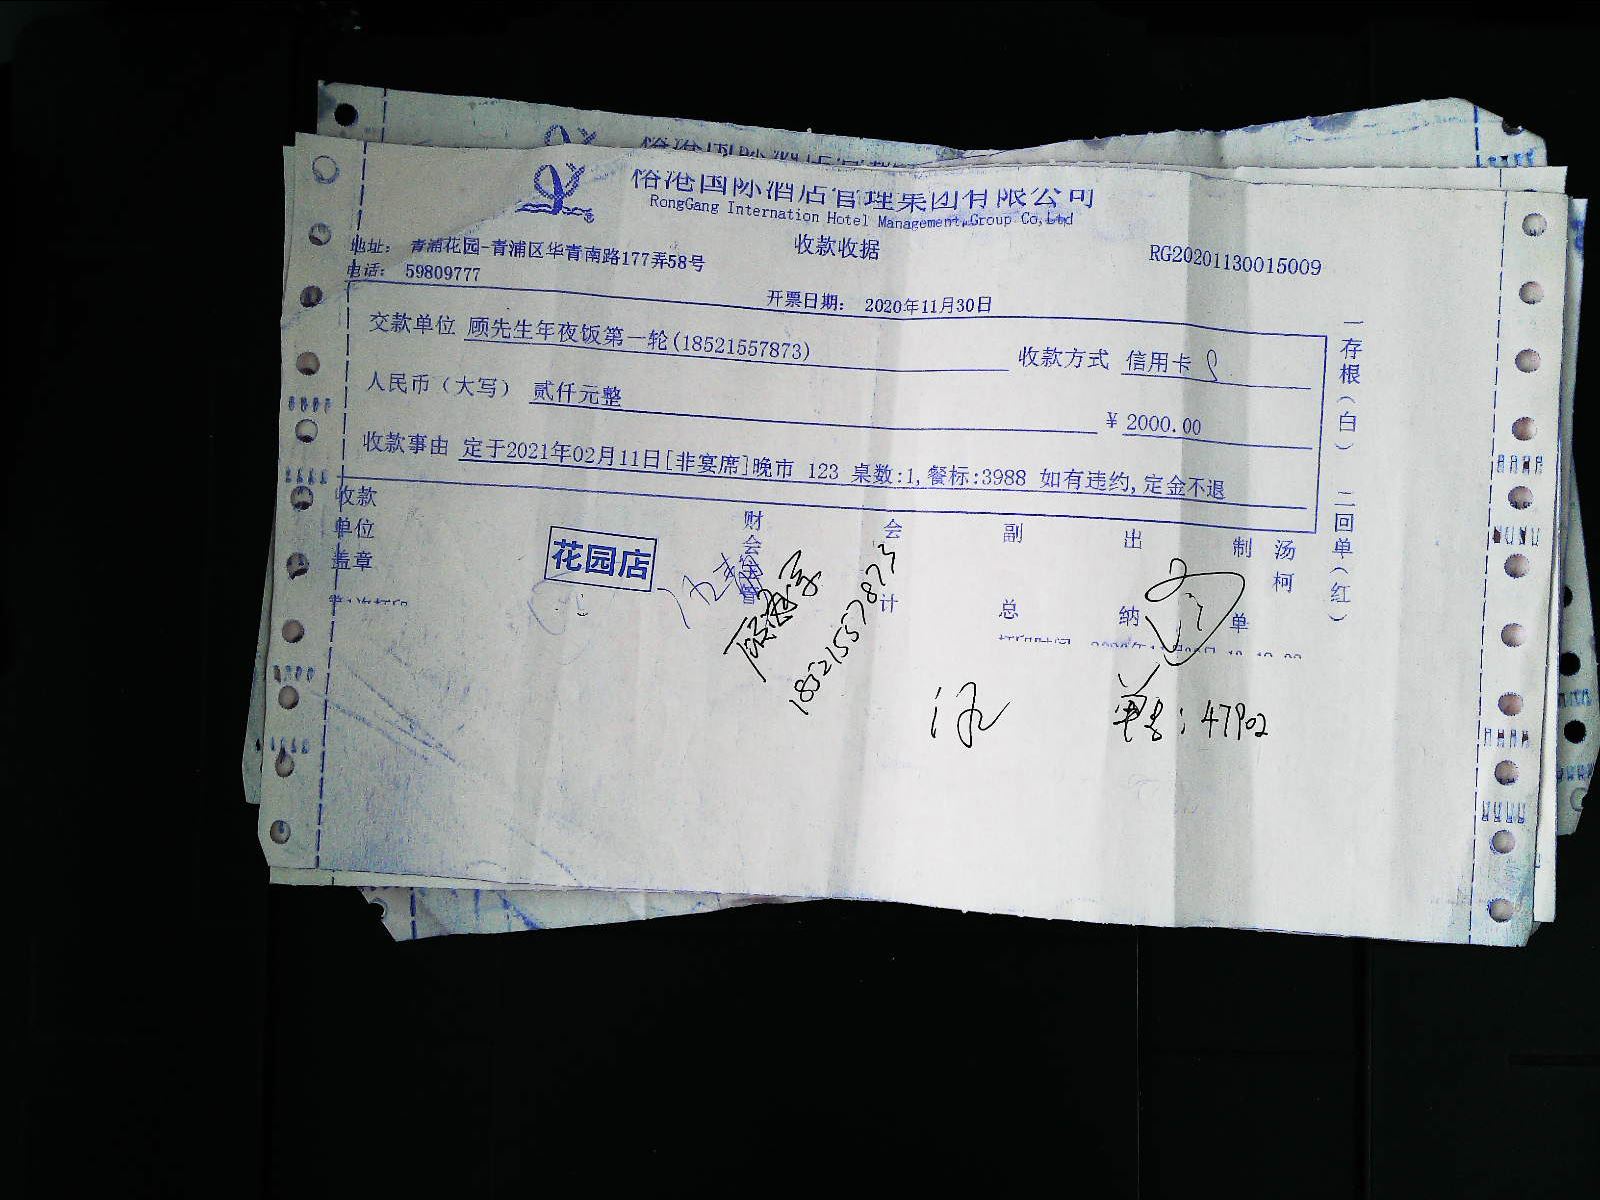 裕港国际酒店管理集团有限公司
RongGang Internation Hotel Management Group Co,Ltd
地址： 青浦花园-青浦区华青南路177弄58号
收款收据
RG20201130015009
电话： 59809777
开票日期： 2020年11月30日
交款单位 顾先生年夜饭第一轮(18521557873)
收款方式 信用卡
人民币（大写） 贰仟元整
¥ 2000.00
收款事由 定于2021年02月11日[非宴席]晚市 123 桌数:1,餐标:3988 如有违约,定金不退
一存根（白） 二回单（红）
收款单位盖章
花园店
财会
会计
副总
出纳
制单
汤柯
18521557873
单号：47902